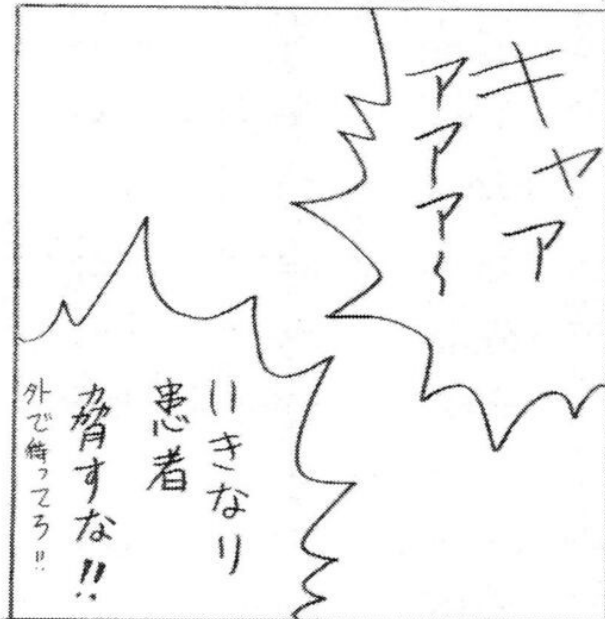 キャア
アアア〜
いきなり
患者
脅すな!!
外で待ってろ!!